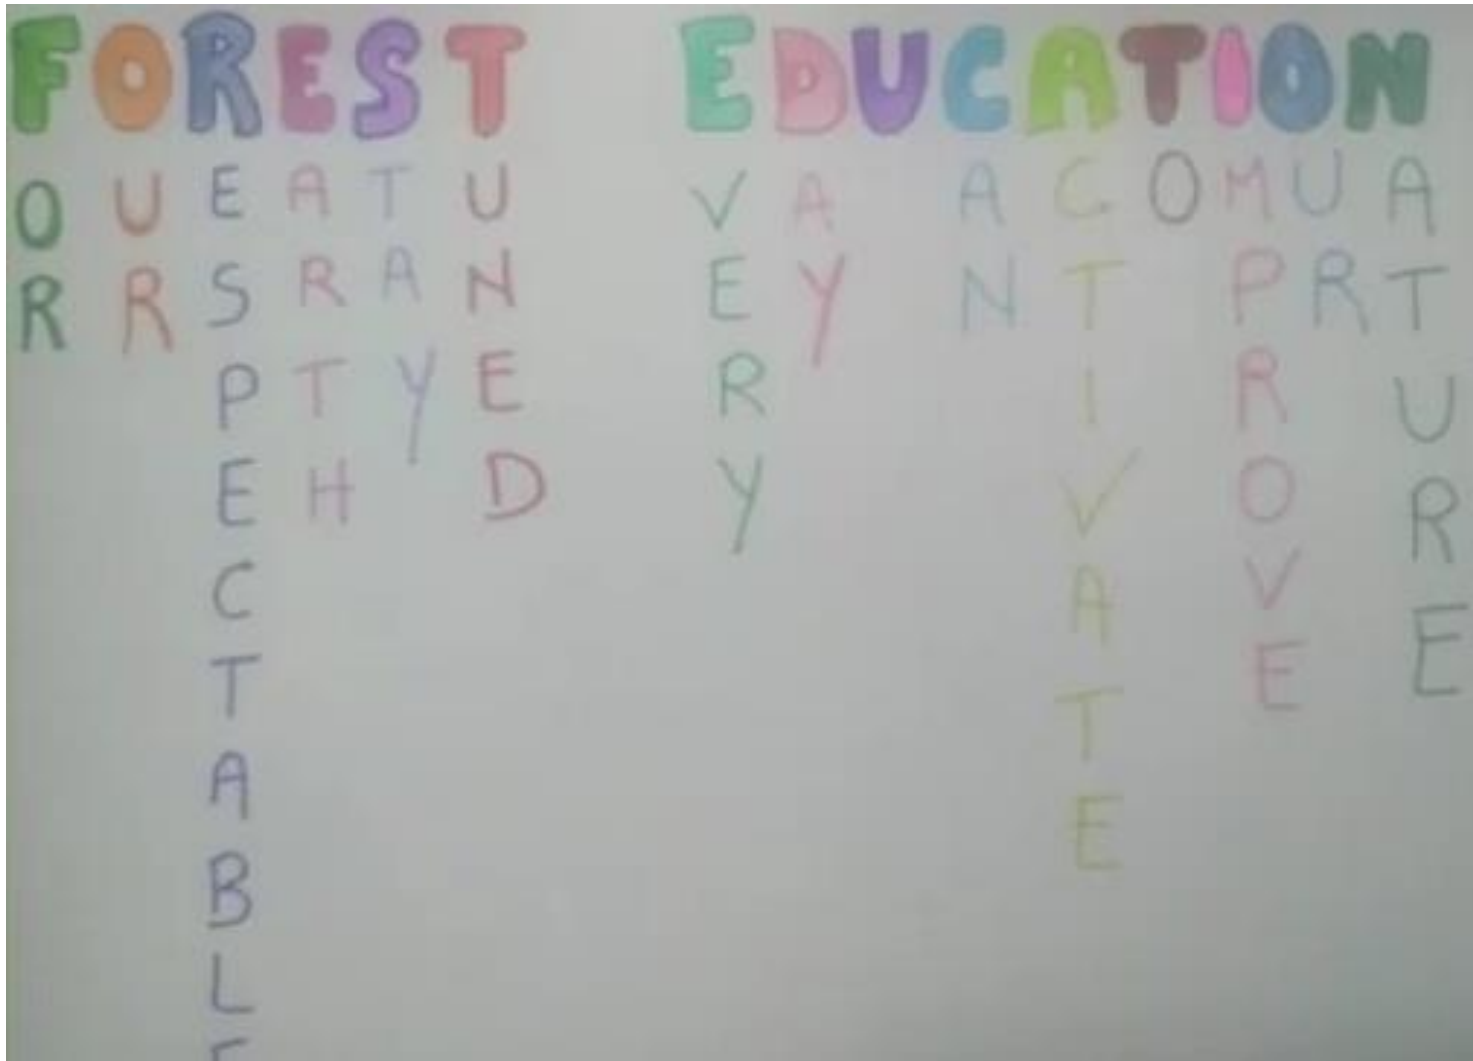 FOREST EDUCATION
OR
UR
ESPECTABLE
ARTH
TAY
UNED
VERY
AY
AN
CTIVATE
O
MPROVE
UR
ATURE